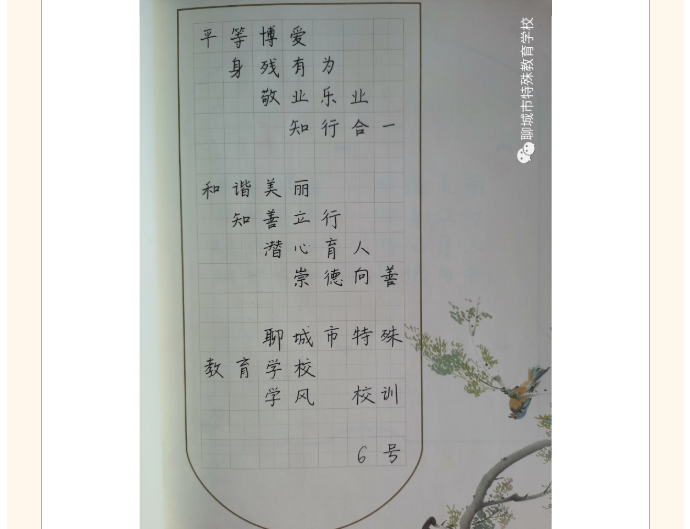 平等博爱
身残有为
敬业乐业
知行合一
和谐美丽
知善立行
潜心育人
崇德向善
聊城市特殊
教育学校
学风 校训
6号
聊城市特殊教育学校